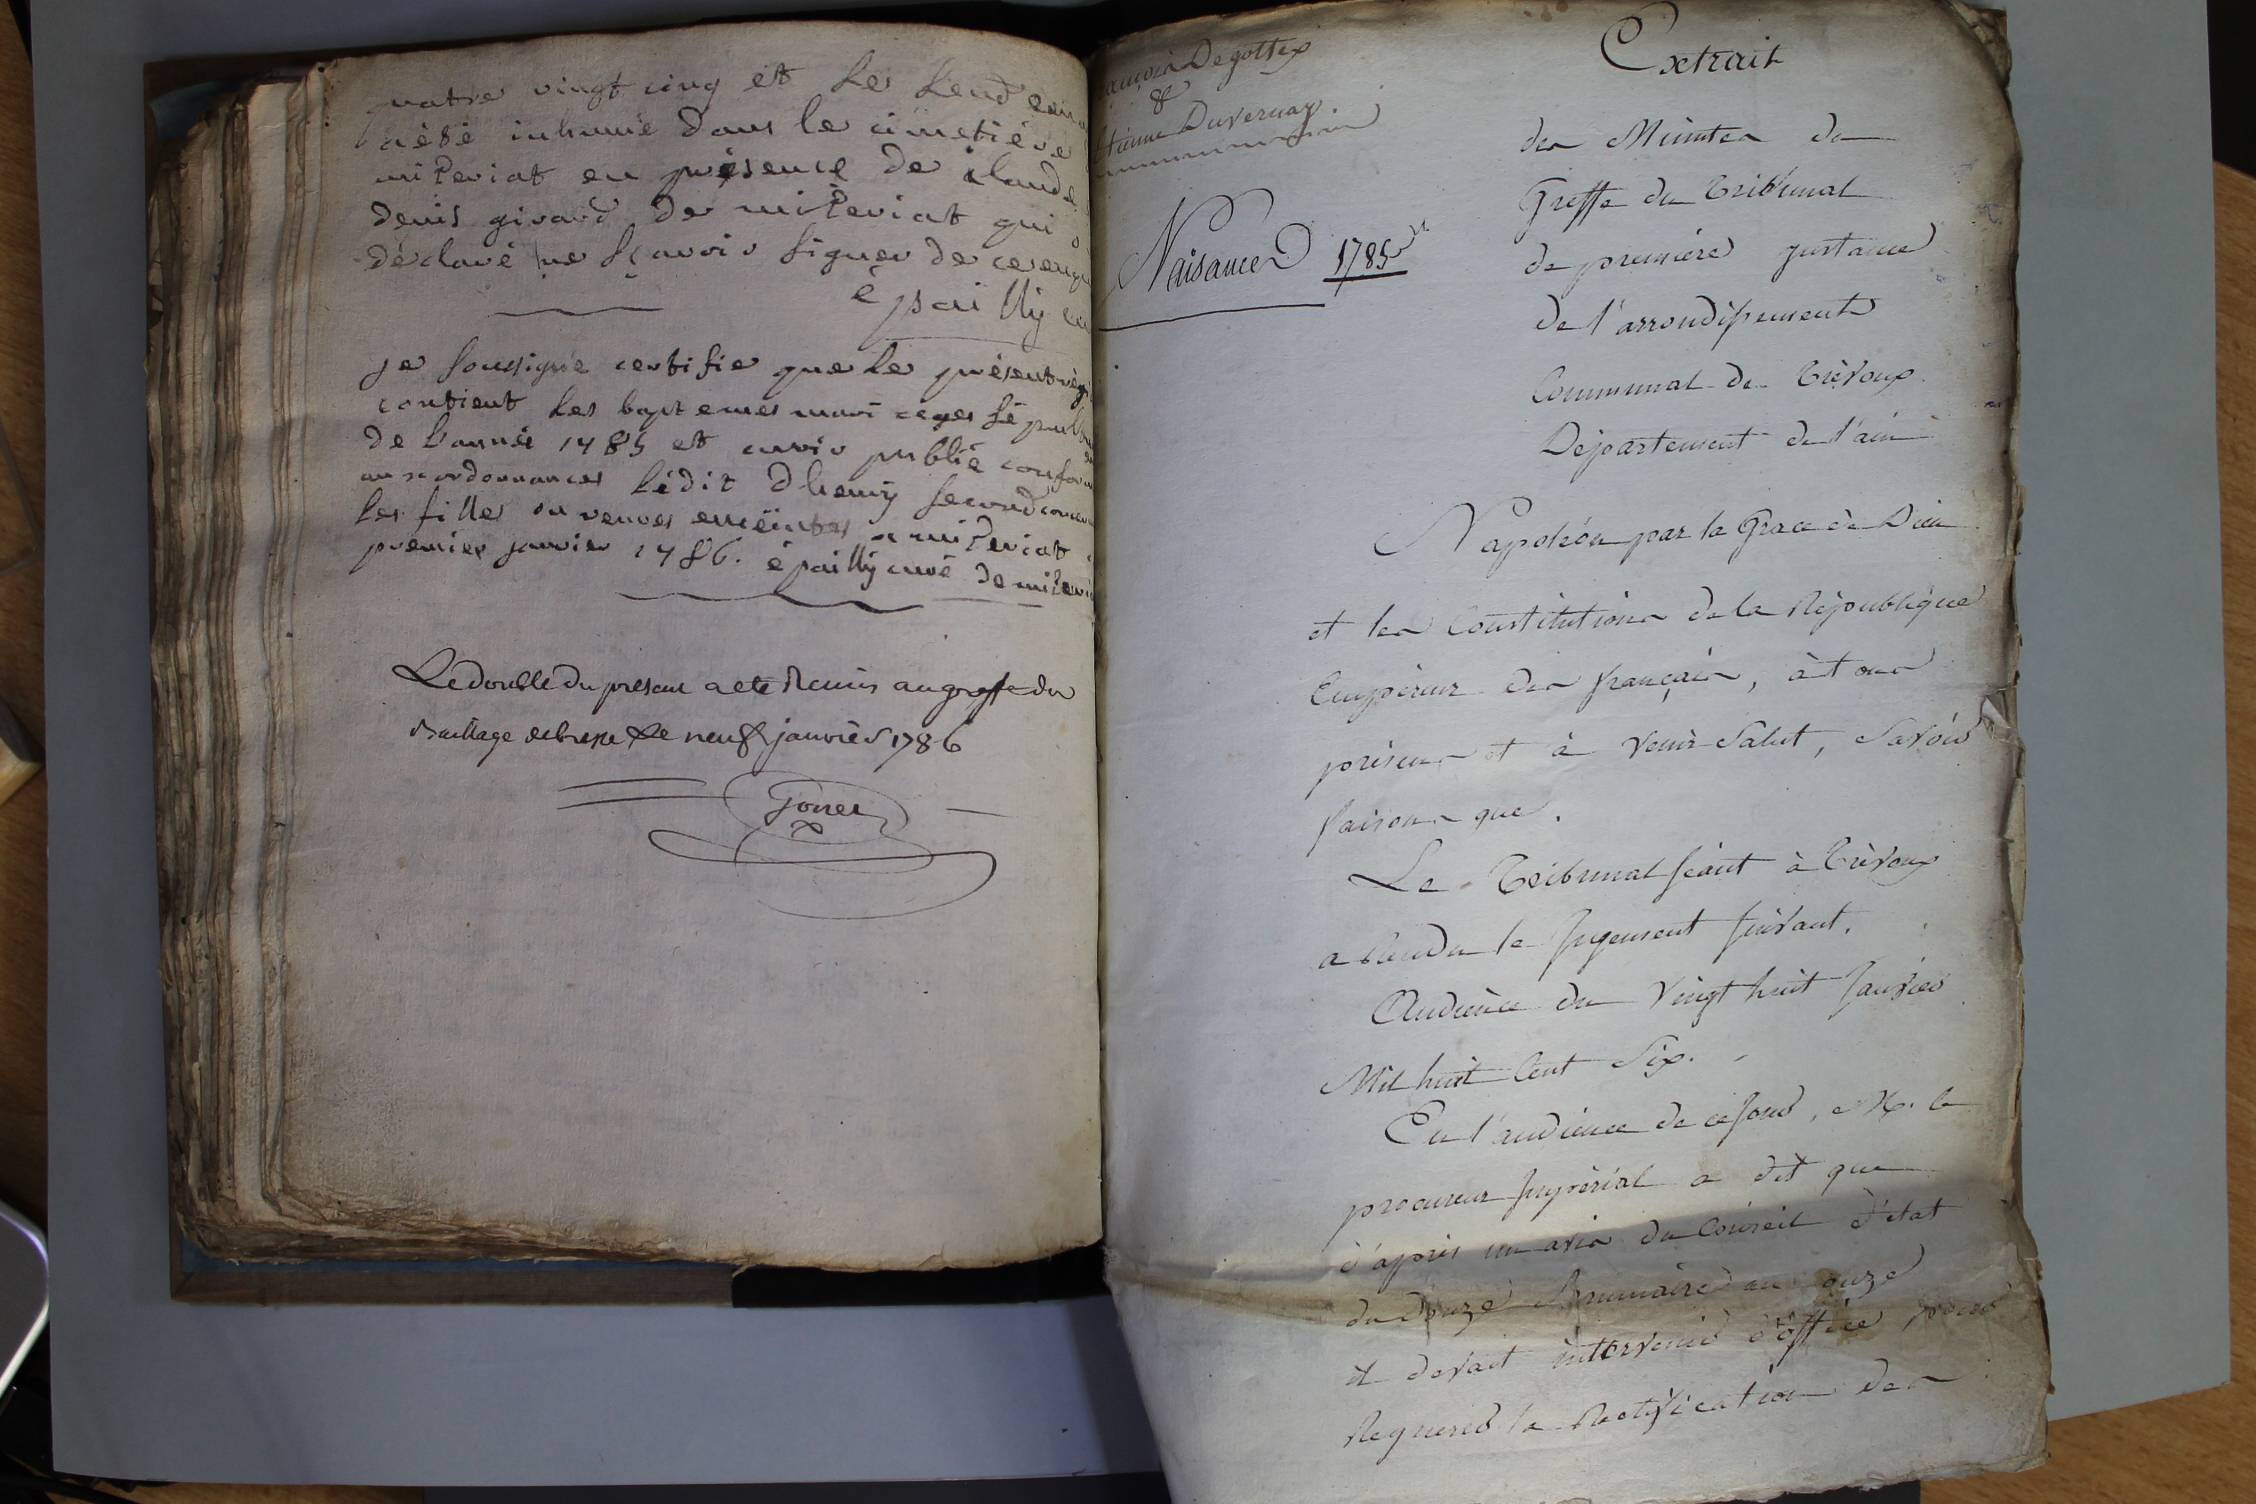 quatre vingt cinq et le lendemain
a èté inhumé dans le cimetiére
mizeriat en présence de claude
denis girard de mizeriat qui
déclaré ne sçavoir signer de ce enquis
épailly cu
je soussigné certifie que le présent règ
contient les baptemes mariages sépult
de l'année 1785 et avoir publié confor
aux ordonnances l'édit d'henry second concern
les filles ou veuves enceintes a mizeriat
premier janvier 1786. épailly curé de mizeri
Le double du present a ete Remis au greffe du
Bailliage de bresse Le neuf janvier 1786
Gonet
ançois Degottex
&
Etienne Duvernay.
Naisance 1785
Extrait
des Minutes du
Greffe du Tribunal
de premiére instance
de l'arrondissement
Communal de Trévoux
Département de l'ain
Napoléon par la Grace de Dieu
et les Constitutions de la République
Empéreur des français, à tous
présens et à venir Salut, Savoir
faisons que.
Le Tribunal séant à Trévoux
a Rendu le Jugement suivant.
Audience du Vingt huit Janvier
Mil huit Cent Six.
En l'audience de ce jour, M. le
procureur Impérial a dit que
d'après un avis du Conseil d'état
du Douze Brumaire an onze
il devait intervenir d'office pour
Requerir la Rectification des